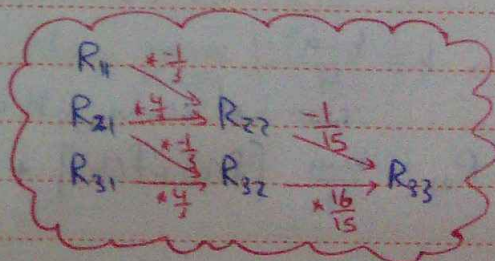 R₁₁ *-1/3
R₂₁ *4/3 R₂₂ -1/15
*-1/3
R₃₁ *4/3 R₃₂ *16/15 R₃₃